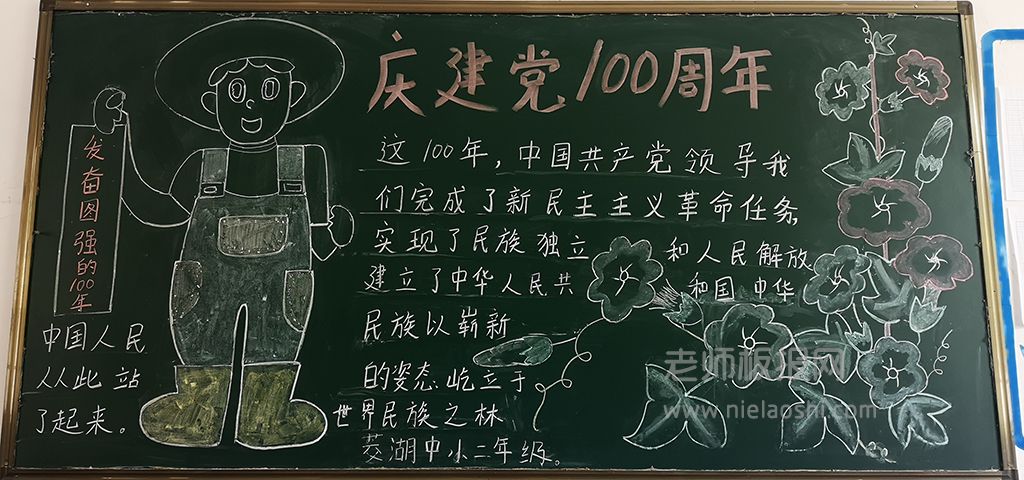 庆建党100周年
发奋图强的100年
中国人民
从此站
了起来。
这100年，中国共产党领导我
们完成了新民主主义革命任务
实现了民族独立和人民解放
建立了中华人民共和国 中华
民族以崭新
的姿态屹立于
世界民族之林
菱湖中小二年级。
老师板报网
www.nielaoshi.com